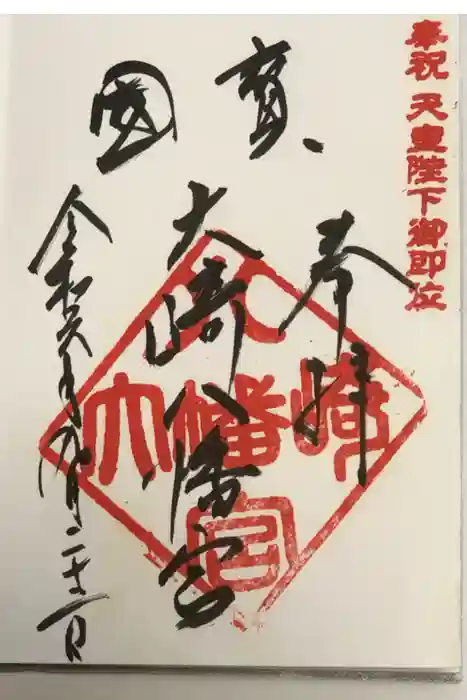 奉祝 天皇陛下御即位
奉拝
國寳
大崎八幡宮
令和元年九月二十二日
八幡宮
大
崎